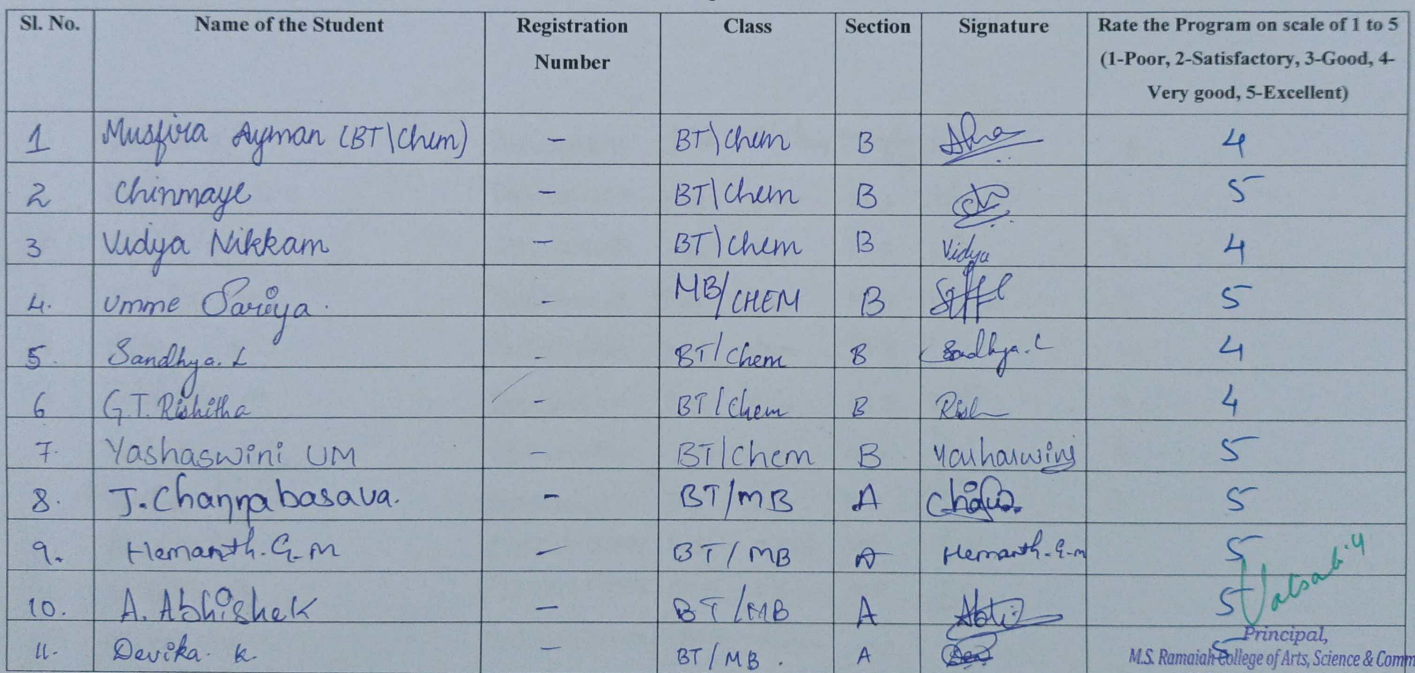 Sl. No. Name of the Student Registration Number Class Section Signature Rate the Program on scale of 1 to 5 (1-Poor, 2-Satisfactory, 3-Good, 4-Very good, 5-Excellent)
1 Musfira Ayman (BT\Chem) – BT\Chem B 4
2 Chinmaye – BT\Chem B 5
3 Vidya Nikkam – BT\Chem B Vidya 4
4. Umme Sariya. – MB/CHEM B 5
5. Sandhya. L – BT/Chem B Sandhya. L 4
6 G.T. Rishitha – BT/Chem B Rish 4
7. Yashaswini UM – BT/Chem B Yashaswini 5
8. J. Channabasava. – BT/MB A 5
9. Hemanth. G. M – BT/MB A Hemanth. G. m 5
10. A. Abhishek – BT/MB A 5
11. Devika. K. – BT/MB. A 5
Principal,
M.S. Ramaiah College of Arts, Science & Comm